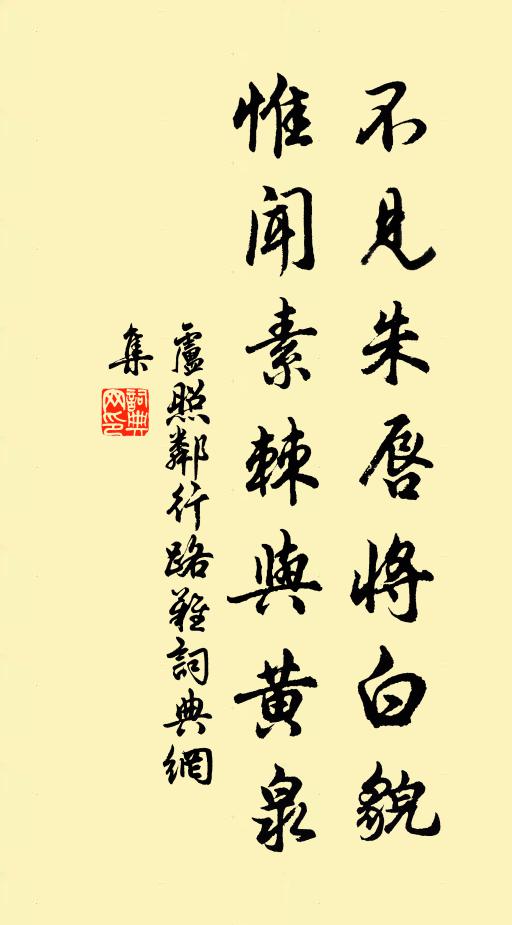 不見朱唇將白貌
惟聞素棘與黃泉
盧照鄰行路難詞典網
集
詞典
网印